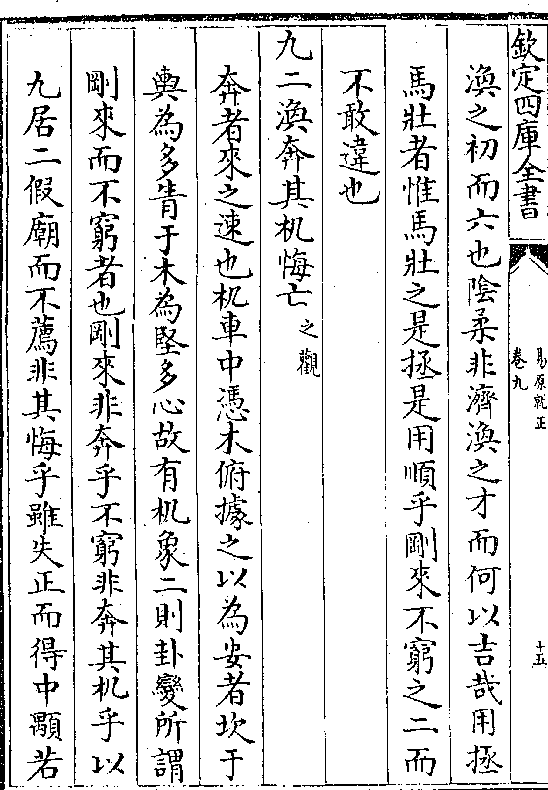 欽定四庫全書
易原就正
卷九
十五
渙之初而六也陰柔非濟渙之才而何以吉哉用拯
馬壯者惟馬壯之是拯是用順乎剛來不窮之二而
不敢違也
九二渙奔其机悔亡之觀
奔者來之速也机車中憑木俯據之以為安者坎于
輿為多眚于木為堅多心故有机象二則卦變所謂
剛來而不窮者也剛來非奔乎不窮非奔其机乎以
九居二假廟而不薦非其悔乎雖失正而得中顒若